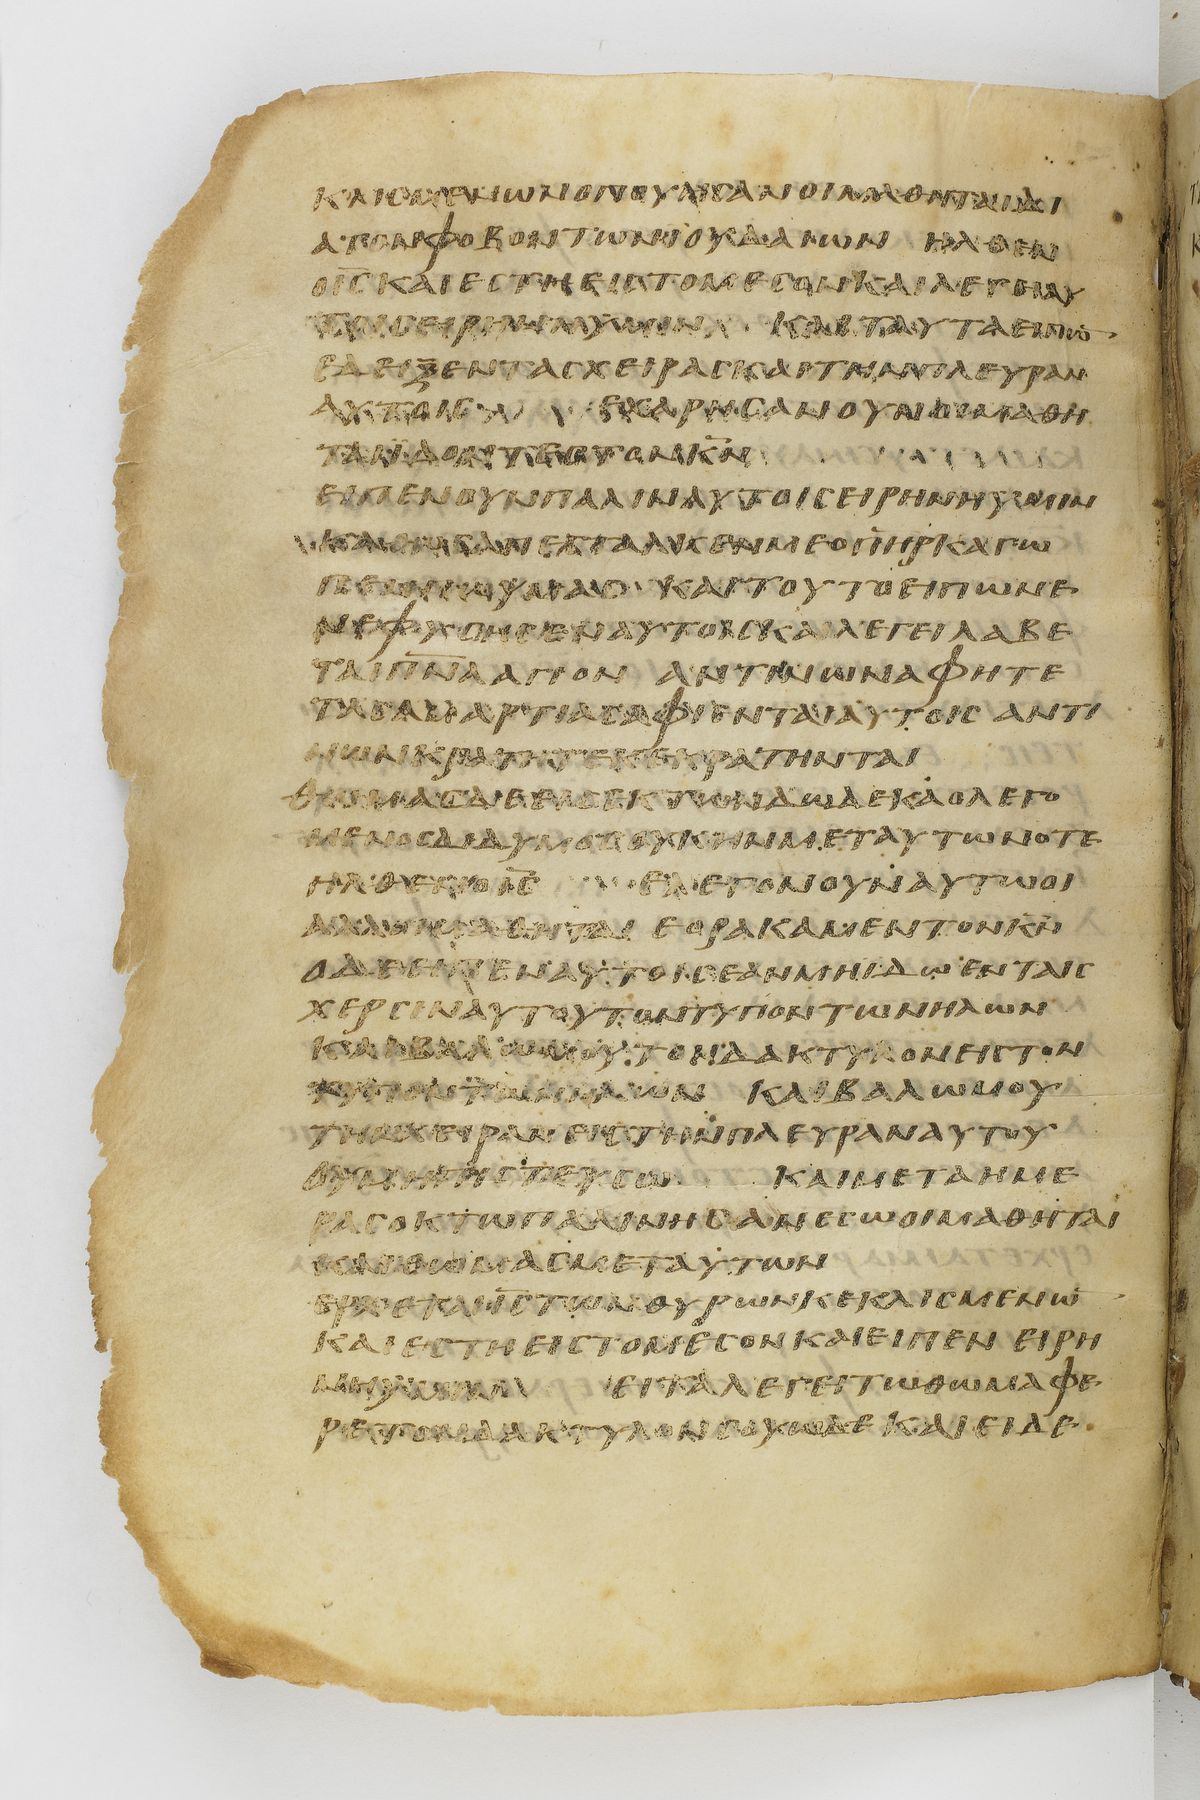 ΟΠΟΥΗϹΑΝΟΙΜΑΘΗΤΑΙΔΙ
ΑΤΟΝΦΟΒΟΝΤΩΝΙΟΥΔΑΙΩΝ ΗΛΘΕΝ
ΟΙϹ̅ΚΑΙΕϹΤΗΕΙϹΤΟΜΕϹΟΝΚΑΙΛΕΓΕΙΑΥ
ΤΟΙϹΕΙΡΗΝΗΥΜΙΝ ΚΑΙΤΑΥΤΑΕΙΠΩ̅
ΕΔΕΙΞΕΝΤΑϹΧΕΙΡΑϹΚΑΙΤΗΝΠΛΕΥΡΑΝ
ΑΥΤΟΙϹ ΕΧΑΡΗϹΑΝΟΥΝΟΙΜΑΘΗ
ΤΑΙΙΔΟΝΤΕϹΤΟΝΚ̅Ν̅
ΕΙΠΕΝΟΥΝΠΑΛΙΝΑΥΤΟΙϹΕΙΡΗΝΗΥΜΙΝ
ΚΑΘΩϹΑΠΕϹΤΑΛΚΕΝΜΕΟΠ̅Η̅Ρ̅ΚΑΓΩ
ΠΕΜΠΩΥΜΑϹ ΚΑΙΤΟΥΤΟΕΙΠΩΝΕ
ΝΕΦΥϹΗϹΕΝΑΥΤΟΙϹΚΑΙΛΕΓΕΙΛΑΒΕ
ΤΑΙΠ̅Ν̅Α̅ΑΓΙΟΝ ΑΝΤΙΝΩΝΑΦΗΤΕ
ΤΑϹΑΜΑΡΤΙΑϹΑΦΙΕΝΤΑΙΑΥΤΟΙϹ ΑΝΤΙ
ΝΩΝΚΡΑΤΗΤΕΚΕΚΡΑΤΗΝΤΑΙ
ΘΩΜΑϹΔΕΕΙϹΕΚΤΩΝΔΩΔΕΚΑΟΛΕΓΟ
ΜΕΝΟϹΔΙΔΥΜΟϹΟΥΚΗΝΜΕΤΑΥΤΩΝΟΤΕ
ΗΛΘΕΝΟΙ̅Ϲ̅ ΕΛΕΓΟΝΟΥΝΑΥΤΩΟΙ
ΑΛΛΟΙΜΑΘΗΤΑΙ ΕΟΡΑΚΑΜΕΝΤΟΝΚ̅Ν̅
ΟΔΕΕΙΠΕΝΑΥΤΟΙϹΕΑΝΜΗΙΔΩΕΝΤΑΙϹ
ΧΕΡϹΙΝΑΥΤΟΥΤΟΝΤΥΠΟΝΤΩΝΗΛΩΝ
ΚΑΙΒΑΛΩΜΟΥΤΟΝΔΑΚΤΥΛΟΝΕΙϹΤΟΝ
ΤΥΠΟΝΤΩΝΗΛΩΝ ΚΑΙΒΑΛΩΜΟΥ
ΤΗΝΧΕΙΡΑΝΕΙϹΤΗΝΠΛΕΥΡΑΝΑΥΤΟΥ
ΟΥΜΗΠΙϹΤΕΥϹΩ ΚΑΙΜΕΤΑΗΜΕ
ΡΑϹΟΚΤΩΠΑΛΙΝΗϹΑΝΕϹΩΟΙΜΑΘΗΤΑΙ
ΚΑΙΘΩΜΑϹΜΕΤΑΥΤΩΝ
ΕΡΧΕΤΑΙΟΙ̅Ϲ̅ΤΩΝΘΥΡΩΝΚΕΚΛΙϹΜΕΝΩ̅
ΚΑΙΕϹΤΗΕΙϹΤΟΜΕϹΟΝΚΑΙΕΙΠΕΝ ΕΙΡΗ
ΝΗΥΜΙΝ ΕΙΤΑΛΕΓΕΙΤΩΘΩΜΑΦΕ
ΡΕΤΟΝΔΑΚΤΥΛΟΝϹΟΥΩΔΕΚΑΙΕΙΔΕ